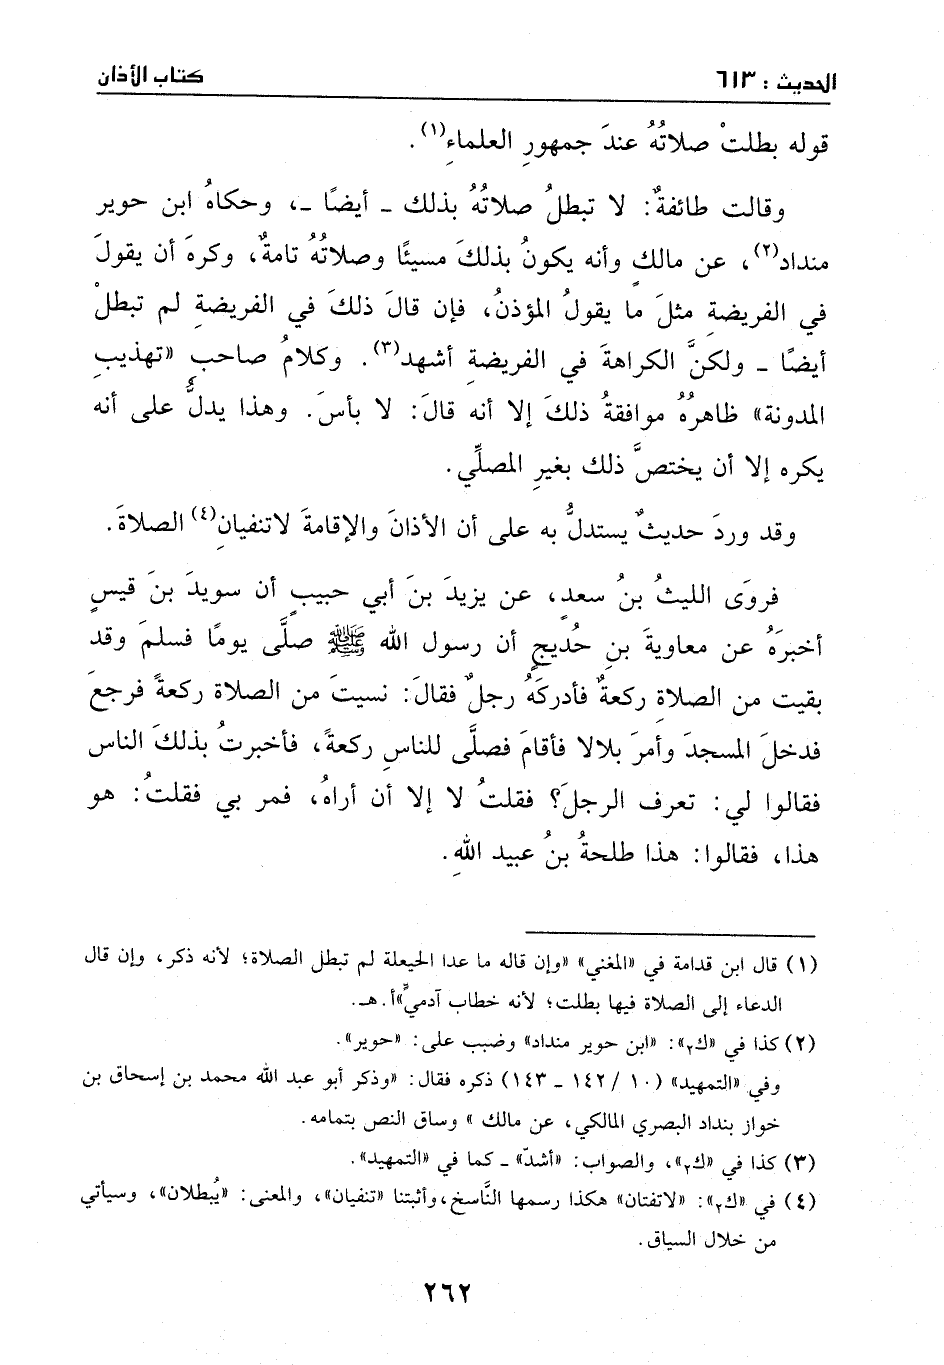 الحديث : ٦١٣ كتاب الأذان
قوله بطلتْ صلاتُهُ عندَ جمهورِ العلماءِ(١).
وقالت طائفةٌ: لا تبطلُ صلاتُهُ بذلك ـ أيضًا ـ، وحكاهُ ابن حوير
منداد(٢)، عن مالكٍ وأنه يكونُ بذلكَ مسيئًا وصلاتُهُ تامةٌ، وكرهَ أن يقولَ
في الفريضةِ مثلَ ما يقولُ المؤذنُ، فإن قالَ ذلكَ في الفريضةِ لم تبطلْ
أيضًا ـ ولكنَّ الكراهةَ في الفريضةِ أشهد(٣). وكلامُ صاحبِ «تهذيبِ
المدونة» ظاهرُهُ موافقةُ ذلكَ إلا أنه قالَ: لا بأسَ. وهذا يدلُّ على أنه
يكره إلا أن يختصَّ ذلك بغيرِ المصلِّي.
وقد وردَ حديثٌ يستدلُّ به على أن الأذانَ والإقامةَ لاتنفيانِ(٤) الصلاةَ.
فروَى الليثُ بنُ سعدٍ، عن يزيدَ بنَ أبي حبيبٍ أن سويدَ بنَ قيسٍ
أخبرَهُ عن معاويةَ بنِ حُديجٍ أن رسول الله ﷺ صلَّى يومًا فسلمَ وقد
بقيت من الصلاةِ ركعةٌ فأدركَهُ رجلٌ فقالَ: نسيتَ من الصلاة ركعةً فرجعَ
فدخلَ المسجدَ وأمرَ بلالا فأقامَ فصلَّى للناسِ ركعةً، فأخبرتُ بذلكَ الناس
فقالوا لي: تعرف الرجلَ؟ فقلتُ لا إلا أن أراهُ، فمر بي فقلتُ: هو
هذا، فقالوا: هذا طلحةُ بنُ عبيد اللهِ.
(١) قال ابن قدامة في «المغني» «وإن قاله ما عدا الحيعلة لم تبطل الصلاة؛ لأنه ذكر، وإن قال
الدعاء إلى الصلاة فيها بطلت؛ لأنه خطاب آدميٍّ»أ.هـ.
(٢) كذا في «ك٢»: «ابن حوير منداد» وضبب على: «حوير».
وفي «التمهيد» (١٠ / ١٤٢ ـ ١٤٣) ذكره فقال: «وذكر أبو عبد الله محمد بن إسحاق بن
خواز بنداد البصري المالكي، عن مالك » وساق النص بتمامه.
(٣) كذا في «ك٢»، والصواب: «أشدّ» ـ كما في «التمهيد».
(٤) في «ك٢»: «لاتفتان» هكذا رسمها النَّاسخ،وأثبتنا «تنفيان»، والمعنى: «يُبطلان»، وسيأتي
من خلال السياق.
٢٦٢